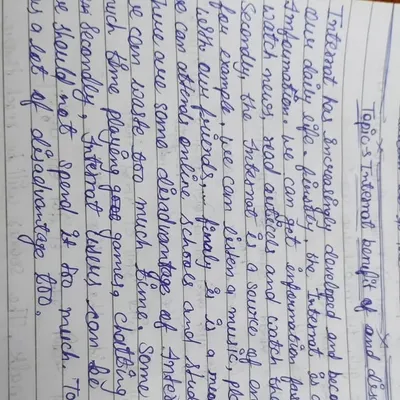 Topic:- Internet benifit of and dis
Internet has increasingly developed and beca
our daily life. firstly the internet is a
information. we can get information fro
watch news, read auticels and watch
Secondly, the Internet is a source of en
for example, we can listen a music, pl
with our friends, finaly is is a mea
e can attend online schools and stud
here are some disadvantage of Inter
e can waste too much time. Some
uch time playing games, chatting
Secondly, Internet users can be
e should not spend it too much. To
s a lot of disadvantage too.